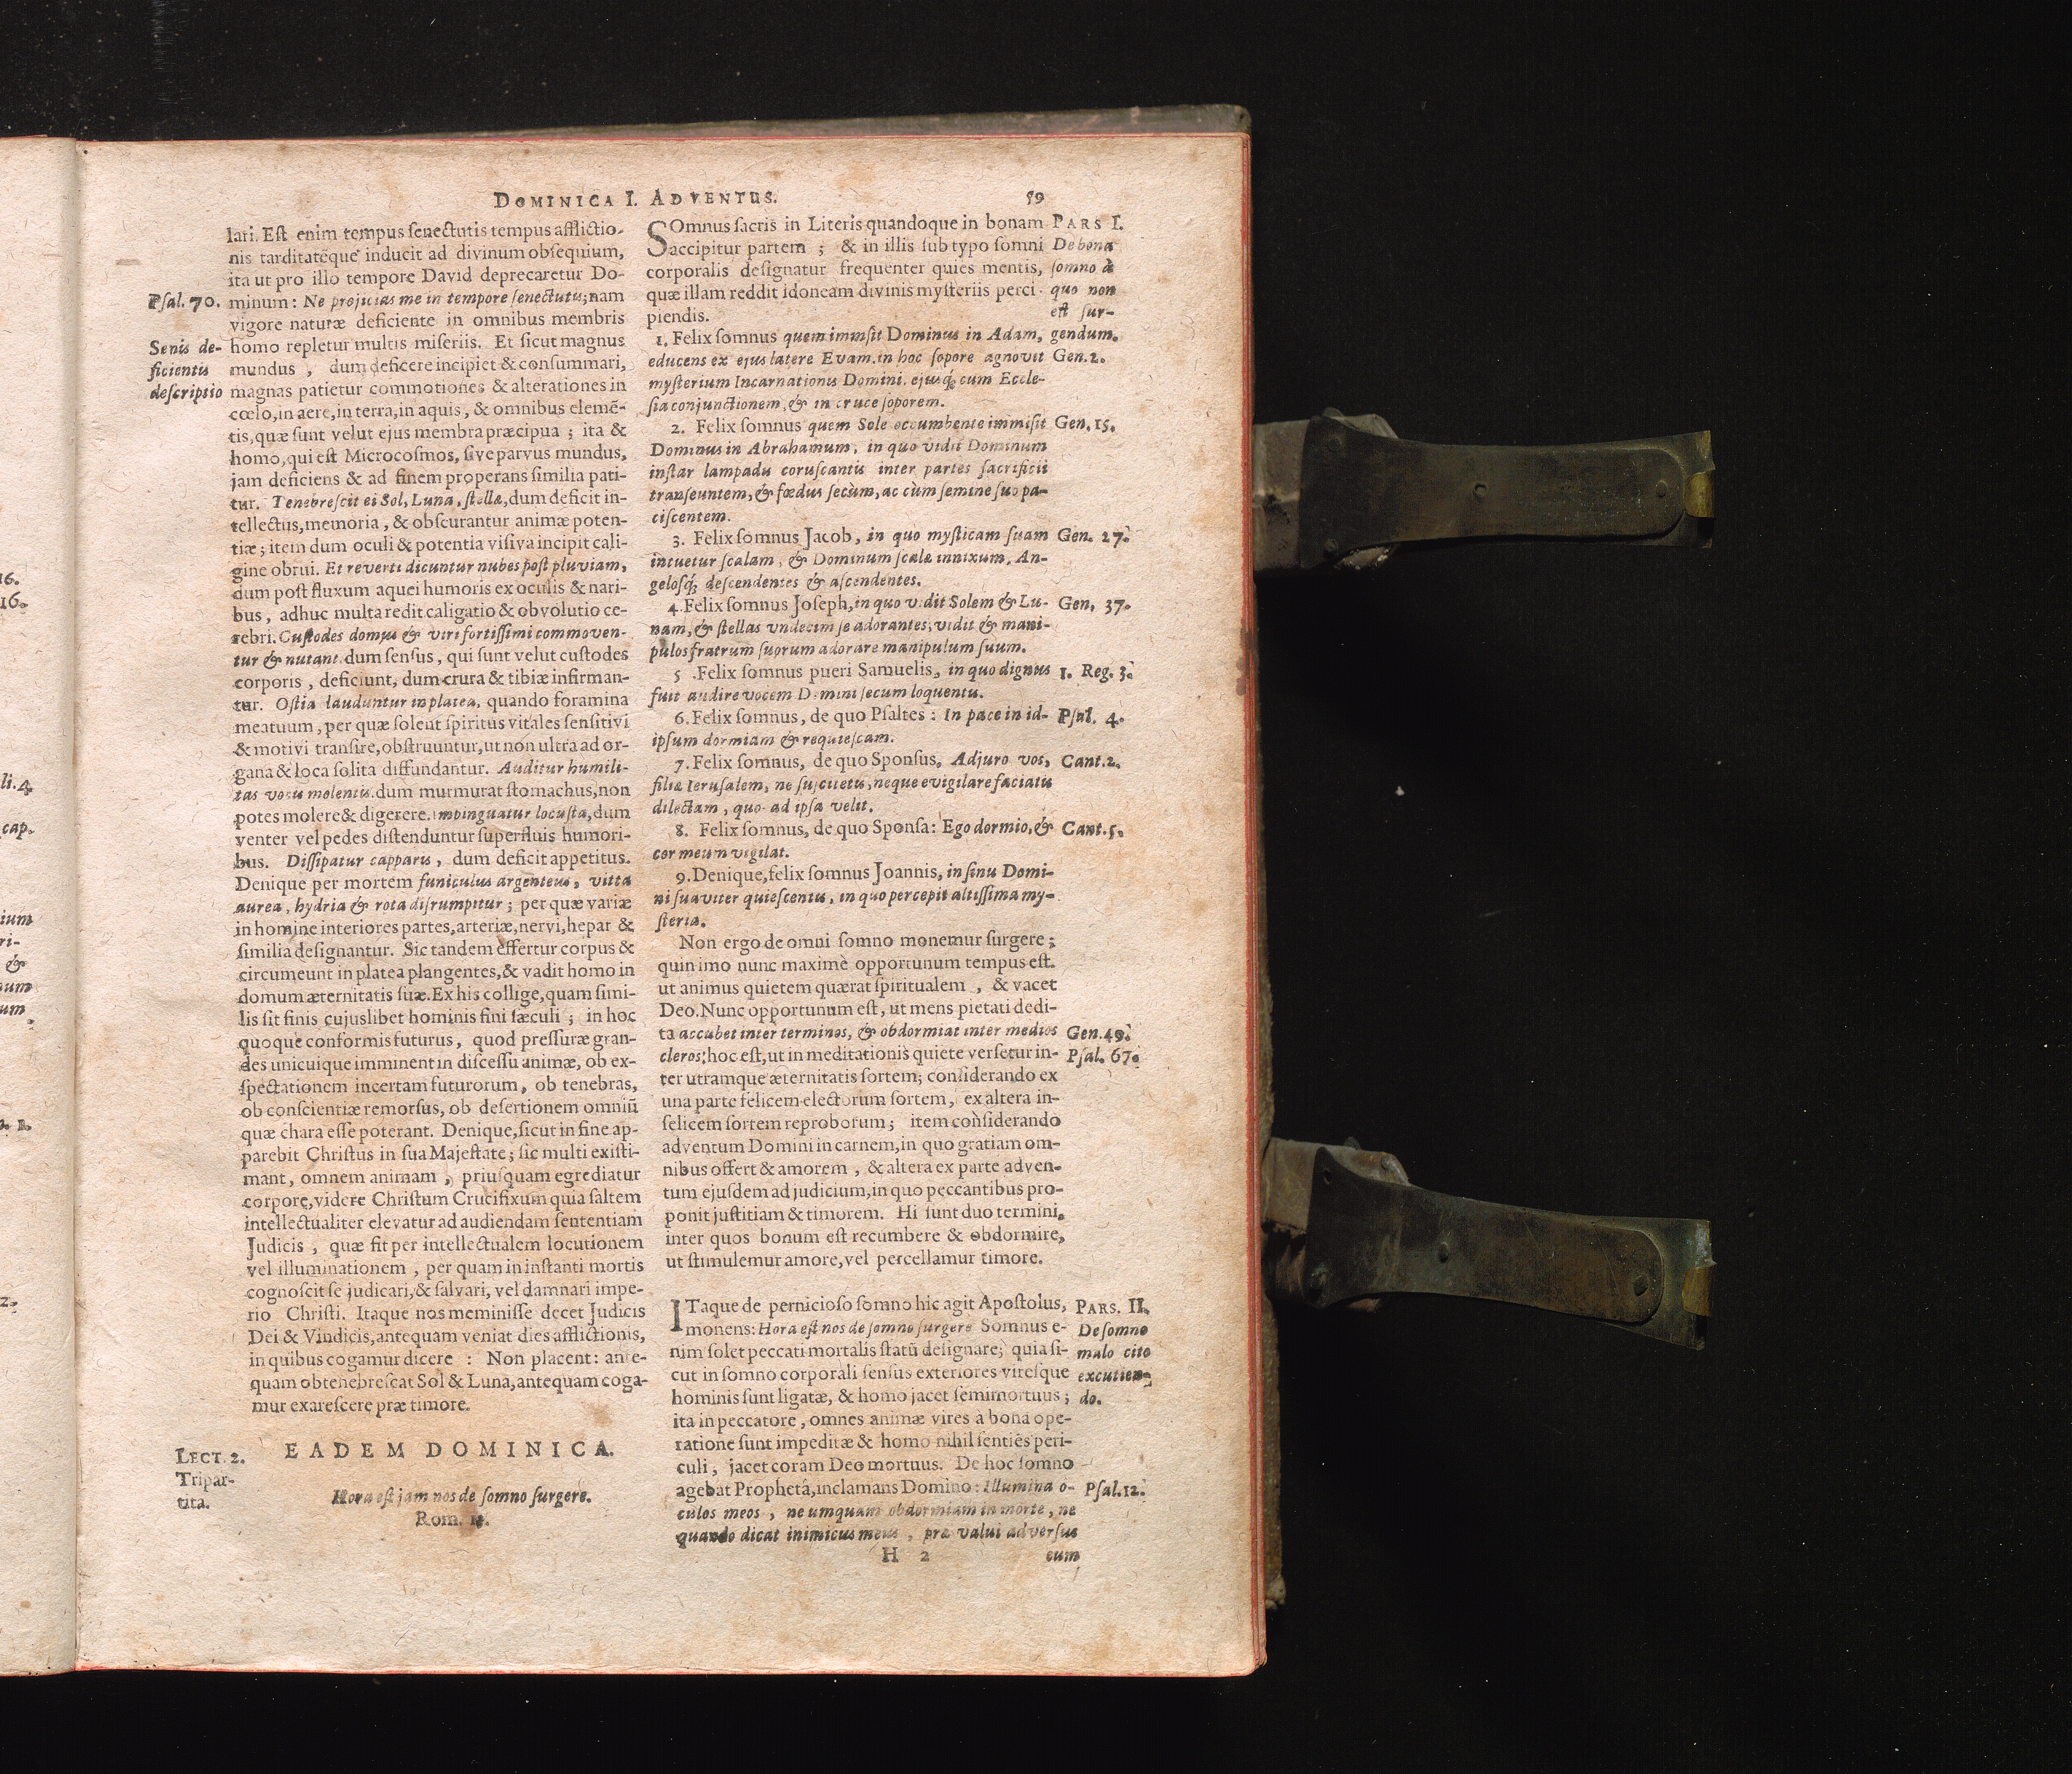 DOMINICA I. ADVENTUS.
59
lari. Est enim tempus senectutis tempus afflictio-
nis tarditatéque inducit ad divinum obsequium,
ita ut pro illo tempore David deprecaretur Do-
Psal. 70.
minum: Ne projicias me in tempore senectutis; nam
vigore naturæ deficiente in omnibus membris
Senis de-
ficientis
descriptio
homo repletur multis miseriis. Et sicut magnus
mundus, dum deficere incipiet & consummari,
magnas patietur commotiones & alterationes in
cœlo, in aere, in terra, in aquis, & omnibus elemē-
tis, quæ sunt velut ejus membra præcipua; ita &
homo, qui est Microcosmos, sive parvus mundus,
jam deficiens & ad finem properans similia pati-
tur. Tenebrescit ei Sol, Luna, stellæ, dum deficit in-
tellectus, memoria, & obscurantur animæ poten-
tiæ; item dum oculi & potentia visiva incipit cali-
gine obrui. Et reverti dicuntur nubes post pluviam,
dum post fluxum aquei humoris ex oculis & nari-
bus, adhuc multa redit caligatio & obvolutio ce-
rebri. Custodes domus & viri fortissimi commoven-
tur & nutant. dum sensus, qui sunt velut custodes
corporis, deficiunt, dum crura & tibiæ infirman-
tur. Ostia lauduntur in platea, quando foramina
meatuum, per quæ solent spiritus vitales sensitivi
& motivi transire, obstruuntur, ut non ultra ad or-
gana & loca solita diffundantur. Auditur humili-
tas vocis molentis. dum murmurat stomachus, non
potes molere & digerere. impinguatur locusta, dum
venter vel pedes distenduntur superfluis humori-
bus. Dissipatur capparis, dum deficit appetitus.
Denique per mortem funiculus argenteus, vitta
aurea, hydria & rota disrumpitur; per quæ variæ
in homine interiores partes, arteriæ, nervi, hepar &
similia designantur. Sic tandem effertur corpus &
circumeunt in platea plangentes, & vadit homo in
domum æternitatis suæ. Ex his collige, quam simi-
lis sit finis cujuslibet hominis fini sæculi; in hoc
quoque conformis futurus, quod pressuræ gran-
des unicuique imminent in discessu animæ, ob ex-
spectationem incertam futurorum, ob tenebras,
ob conscientiæ remorsus, ob desertionem omniū
quæ chara esse poterant. Denique, sicut in fine ap-
parebit Christus in sua Majestate; sic multi existi-
mant, omnem animam, priusquam egrediatur
corpore, videre Christum Crucifixum quia saltem
intellectualiter elevatur ad audiendam sententiam
Judicis, quæ fit per intellectualem locutionem
vel illuminationem, per quam in instanti mortis
cognoscit se judicari, & salvari, vel damnari impe-
rio Christi. Itaque nos meminisse decet Judicis
Dei & Vindicis, antequam veniat dies afflictionis,
in quibus cogamur dicere : Non placent: ante-
quam obtenebrescat Sol & Luna, antequam coga-
mur exarescere præ timore.
LECT. 2.
Tripar-
tita.
EADEM DOMINICA.
Hora est jam nos de somno surgere.
Rom.
SOmnus sacris in Literis quandoque in bonam
accipitur partem ; & in illis sub typo somni
corporalis designatur frequenter quies mentis,
quæ illam reddit idoneam divinis mysteriis perci-
piendis.
PARS I.
De bono
somno à
quo non
est sur-
gendum.
1. Felix somnus quem immisit Dominus in Adam,
Gen. 2.
educens ex ejus latere Evam. in hoc sopore agnovit
mysterium Incarnationis Domini. ejusq; cum Eccle-
sia conjunctionem, & in cruce soporem.
2. Felix somnus quem Sole occumbente immisit
Gen. 15.
Dominus in Abrahamum, in quo vidit Dominum
instar lampadis coruscantis inter partes sacrificii
transeuntem, & fœdus secùm, ac cùm semine suo pa-
ciscentem.
3. Felix somnus Jacob, in quo mysticam suam
Gen. 27.
intuetur scalam, & Dominum scalæ innixum, An-
gelosq; descendentes & ascendentes.
4. Felix somnus Joseph, in quo vidit Solem & Lu-
Gen. 37.
nam, & stellas vndecim se adorantes, vidit & mani-
pulos fratrum suorum adorare manipulum suum.
5. Felix somnus pueri Samuelis, in quo dignus
1. Reg. 3.
fuit audire vocem Domini secum loquentis.
6. Felix somnus, de quo Psaltes : In pace in id-
Psal. 4.
ipsum dormiam & requiescam.
7. Felix somnus, de quo Sponsus. Adjuro vos,
Cant. 2.
filiæ Ierusalem, ne suscitetis, neque evigilare faciatis
dilectam, quo ad ipsa velit.
8. Felix somnus, de quo Sponsa: Ego dormio, &
Cant. 5.
cor meum vigilat.
9. Denique, felix somnus Joannis, in sinu Domi-
ni suaviter quiescentis, in quo percepit altissima my-
steria.
Non ergo de omni somno monemur surgere;
quin imo nunc maximè opportunum tempus est.
ut animus quietem quærat spiritualem, & vacet
Deo. Nunc opportunum est, ut mens pietati dedi-
ta accubet inter terminos, & obdormiat inter medios
Gen. 49.
cleros; hoc est, ut in meditationis quiete versetur in-
Psal. 67.
ter utramque æternitatis sortem; considerando ex
una parte felicem electorum sortem, ex altera in-
felicem sortem reproborum; item considerando
adventum Domini in carnem, in quo gratiam om-
nibus offert & amorem, & altera ex parte adven-
tum ejusdem ad judicium, in quo peccantibus pro-
ponit justitiam & timorem. Hi sunt duo termini,
inter quos bonum est recumbere & obdormire,
ut stimulemur amore, vel percellamur timore.
ITaque de pernicioso somno hic agit Apostolus,
monens: Hora est nos de somno surgere Somnus e-
nim solet peccati mortalis statū designare; quia si-
cut in somno corporali sensus exteriores viresque
hominis sunt ligatæ, & homo jacet semimortuus ;
PARS. II.
De somno
malo cito
excutien-
do.
ita in peccatore, omnes animæ vires à bona ope-
ratione sunt impeditæ & homo nihil sentiēs peri-
culi, jacet coram Deo mortuus. De hoc somno
agebat Propheta, inclamans Domino: Illumina o-
Psal. 12.
culos meos, ne umquam obdormiam in morte, ne
quando dicat inimicus meus, præ valui adversus
H 2
eum
16.
16.
li. 4.
cap.
ium
ri-
&
num
um
1.
2.